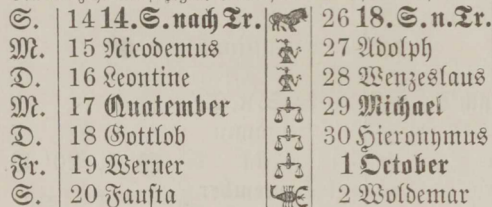 S. 14 14. S. nach Tr. 26 18. S. n. Tr.
M. 15 Nicodemus 27 Adolph
D. 16 Leontine 28 Wenzeslaus
M. 17 Quatember 29 Michael
D. 18 Gottlob 30 Hieronymus
Fr. 19 Werner 1 October
S. 20 Fausta 2 Woldemar